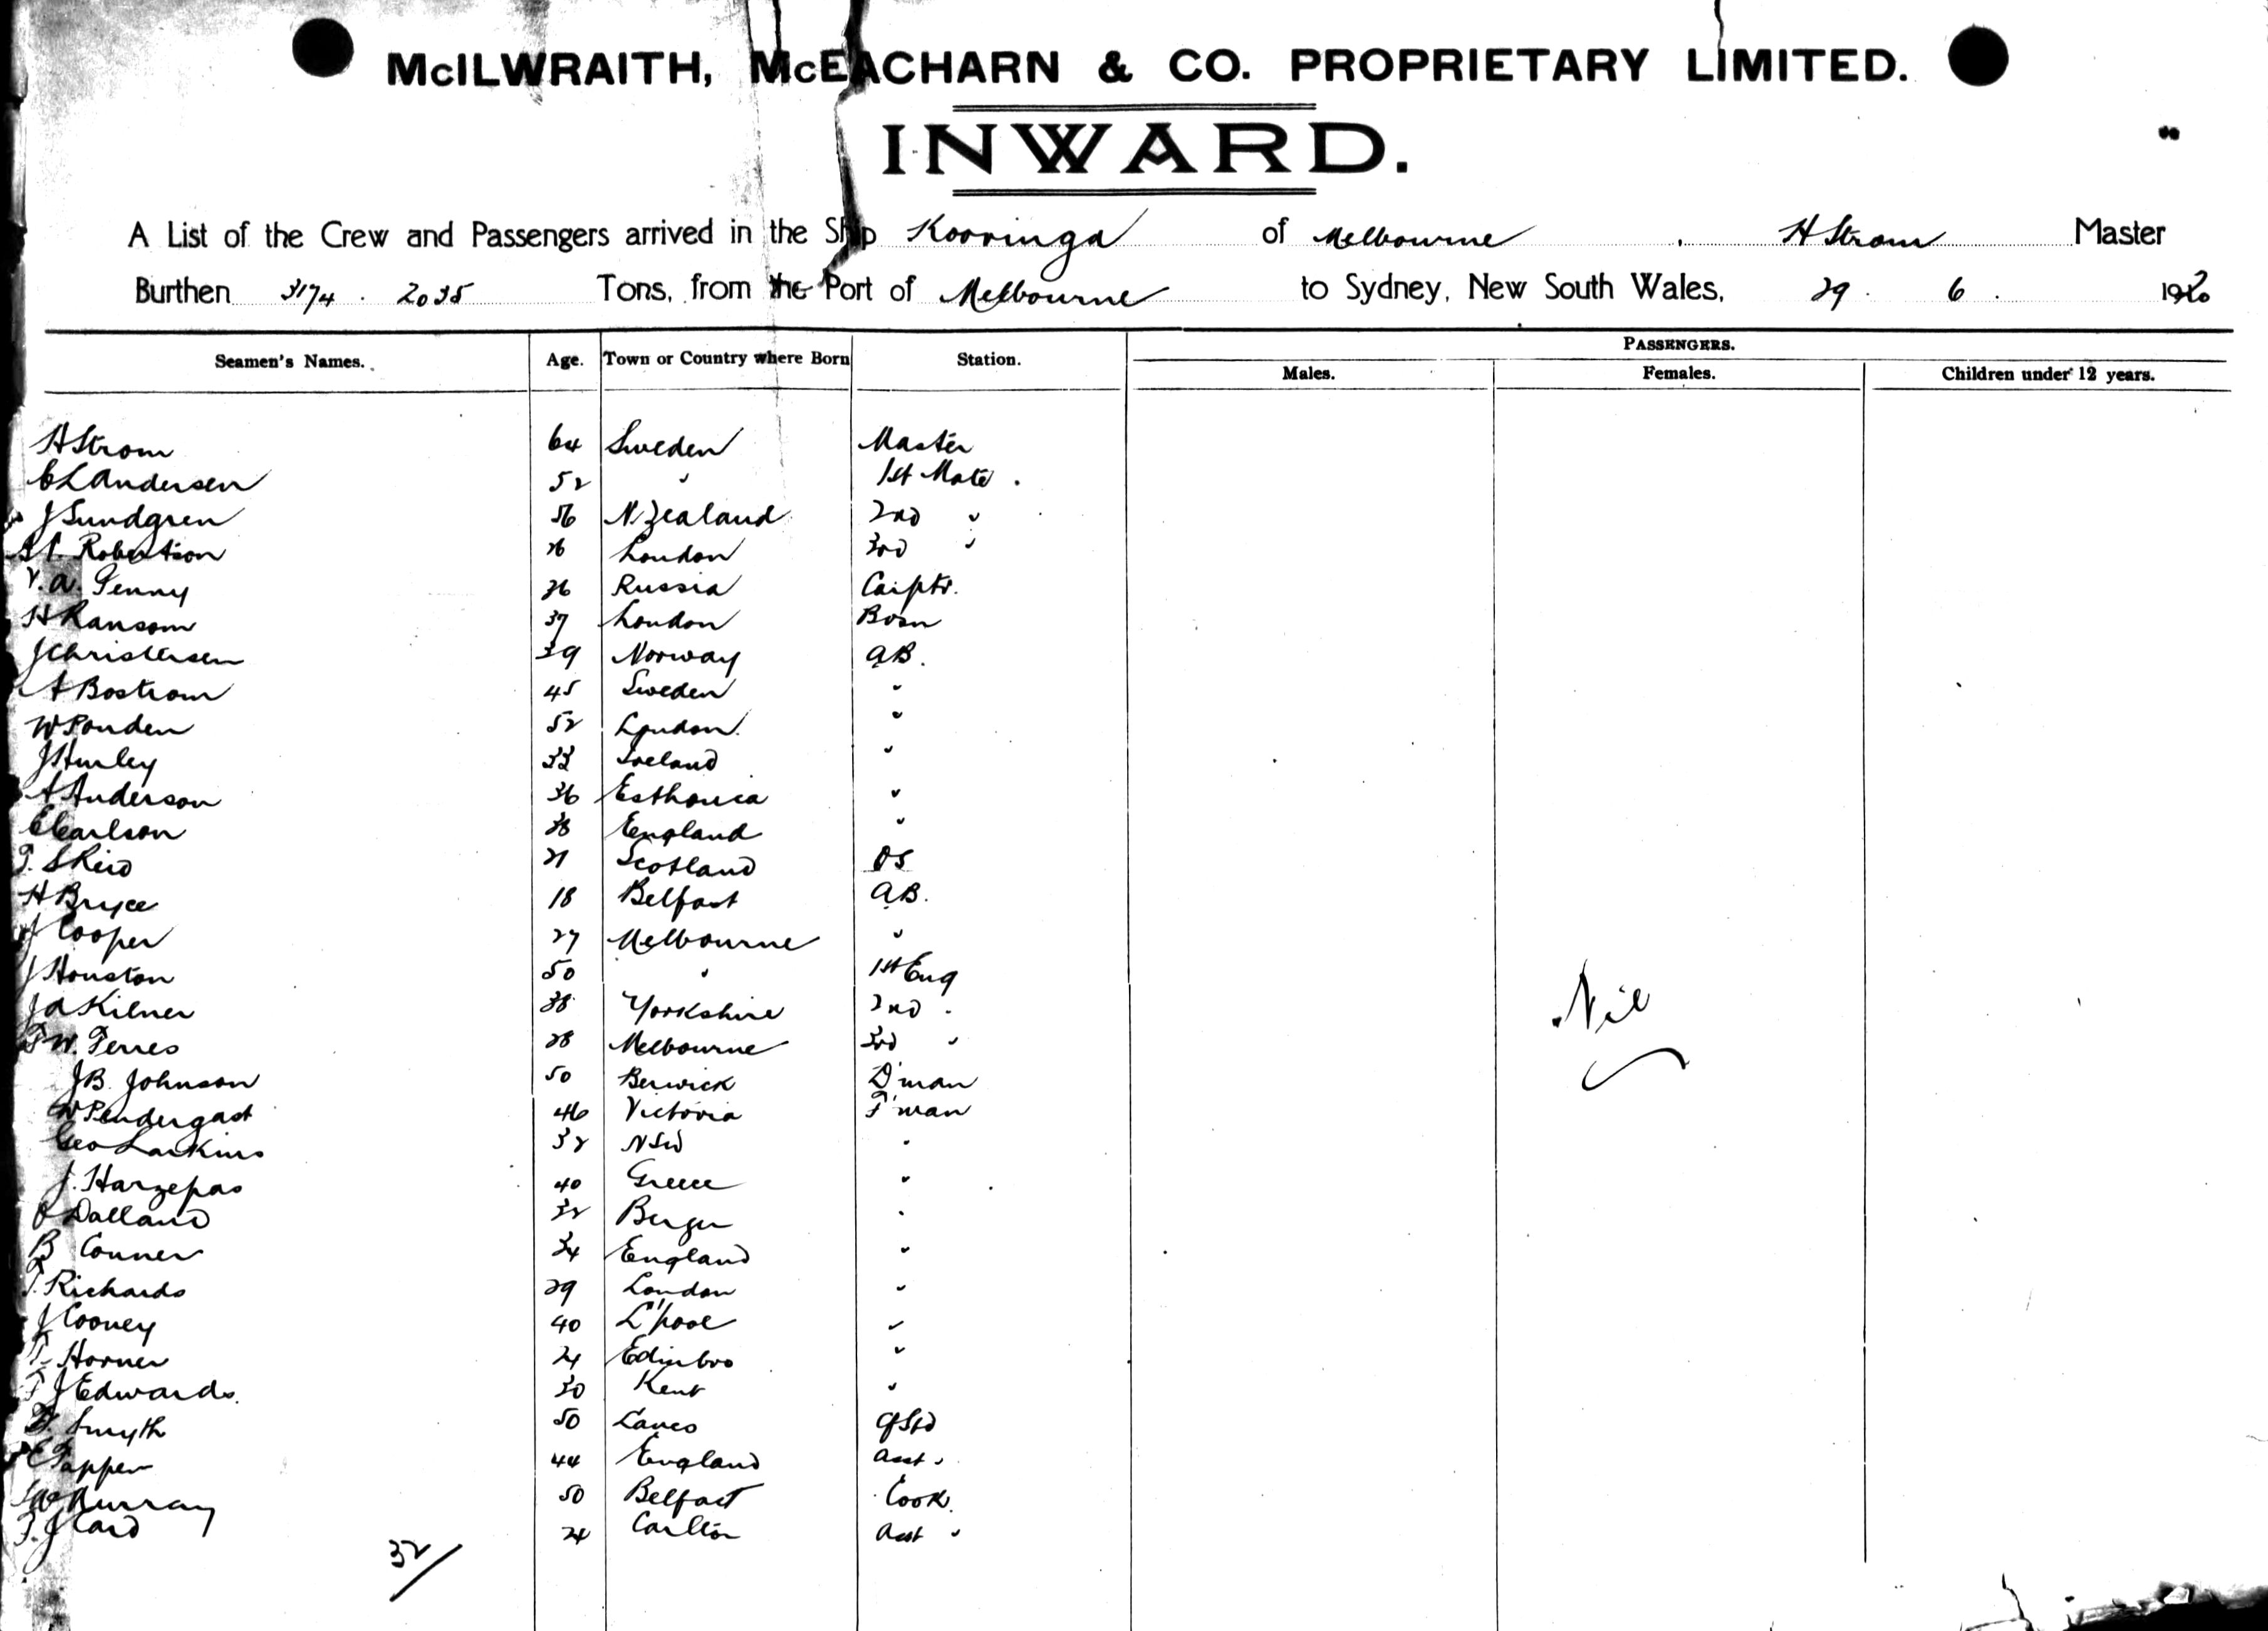 McILWRAITH, McEACHARN & CO. PROPRIETARY LIMITED.
INWARD.
A List of the Crew and Passengers arrived in the Ship Kooringa of Melbourne, H Strom Master
Burthen 3174 . 2035 Tons, from the Port of Melbourne to Sydney, New South Wales, 29 . 6 . 1920
PASSENGERS.
Seamen's Names. Age. Town or Country where Born Station. Males. Females. Children under 12 years.
H Strom 64 Sweden Master
C L Andersen 52 " 1st Mate .
J Sundgren 56 N. Zealand 2nd "
Robertson 26 London 3rd "
V. A. Penny 36 Russia Carptr.
H Ransom 37 London Bosn
J Christersen 39 Norway AB.
A Bostrom 45 Sweden "
W Ponden 52 London "
J Hurley 33 Ireland "
A Anderson 36 Esthonia "
C Carlson 38 England "
T. S Reid 21 Scotland OS
H Bryce 18 Belfast AB.
J Cooper 27 Melbourne "
J Houston 50 " 1st Eng
J A Kilner 38 Yorkshire 2nd "
F W. Ferres 28 Melbourne 3rd "
J B. Johnson 50 Berwick D'man
W Pendergast 46 Victoria F'man
Geo Larkins 32 NSW "
J. Harzepas 40 Greece "
O Dalland 32 Bergen "
B Conner 34 England "
T. Richards 29 London "
J Cooney 40 L'pool "
T. Horner 24 Edinbro "
F J Edwards. 30 Kent "
D. Smyth 50 Lancs Ch Std
E Tapper 44 England Asst "
McMurray 50 Belfast Cook.
T. J Card 24 Carlton Asst "
Nil
32/